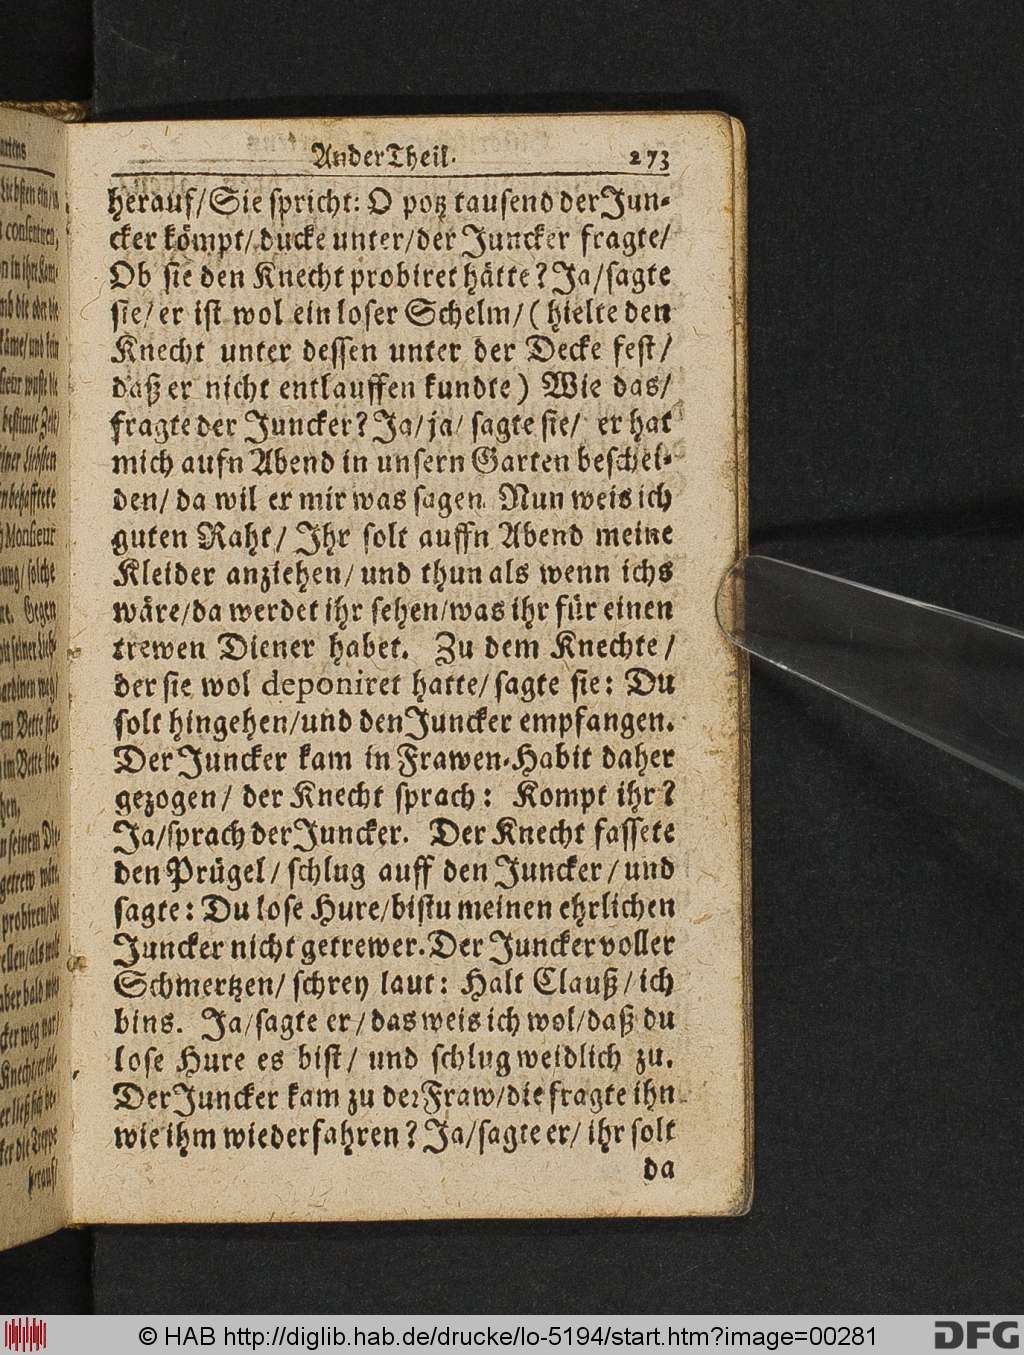 Ander Theil. 273
herauf/ Sie spricht: O potz tausend der Jun-
cker kömpt/ ducke unter/ der Juncker fragte/
Ob sie den Knecht probiret hätte? Ja/ sagte
sie/ er ist wol ein loser Schelm/ ( hielte den
Knecht unter dessen unter der Decke fest/
daß er nicht entlauffen kundte) Wie das/
fragte der Juncker? Ja/ ja/ sagte sie/ er hat
mich aufn Abend in unsern Garten beschei-
den/ da wil er mir was sagen. Nun weis ich
guten Raht/ Ihr solt auffn Abend meine
Kleider anziehen/ und thun als wenn ichs
wäre/ da werdet ihr sehen/ was ihr für einen
trewen Diener habet. Zu dem Knechte/
der sie wol deponiret hatte/ sagte sie: Du
solt hingehen/ und den Juncker empfangen.
Der Juncker kam in Frawen-Habit daher
gezogen/ der Knecht sprach: Kompt ihr?
Ja/ sprach der Juncker. Der Knecht fassete
den Prügel/ schlug auff den Juncker/ und
sagte: Du lose Hure/ bistu meinen ehrlichen
Juncker nicht getrewer. Der Juncker voller
Schmertzen/ schrey laut: Halt Clauß/ ich
bins. Ja/ sagte er/ das weis ich wol/ daß du
lose Hure es bist/ und schlug weidlich zu.
Der Juncker kam zu der Fraw/ die fragte ihn
wie ihm wiederfahren? Ja/ sagte er/ ihr solt
da
© HAB http://diglib.hab.de/drucke/lo-5194/start.htm?image=00281
DFG